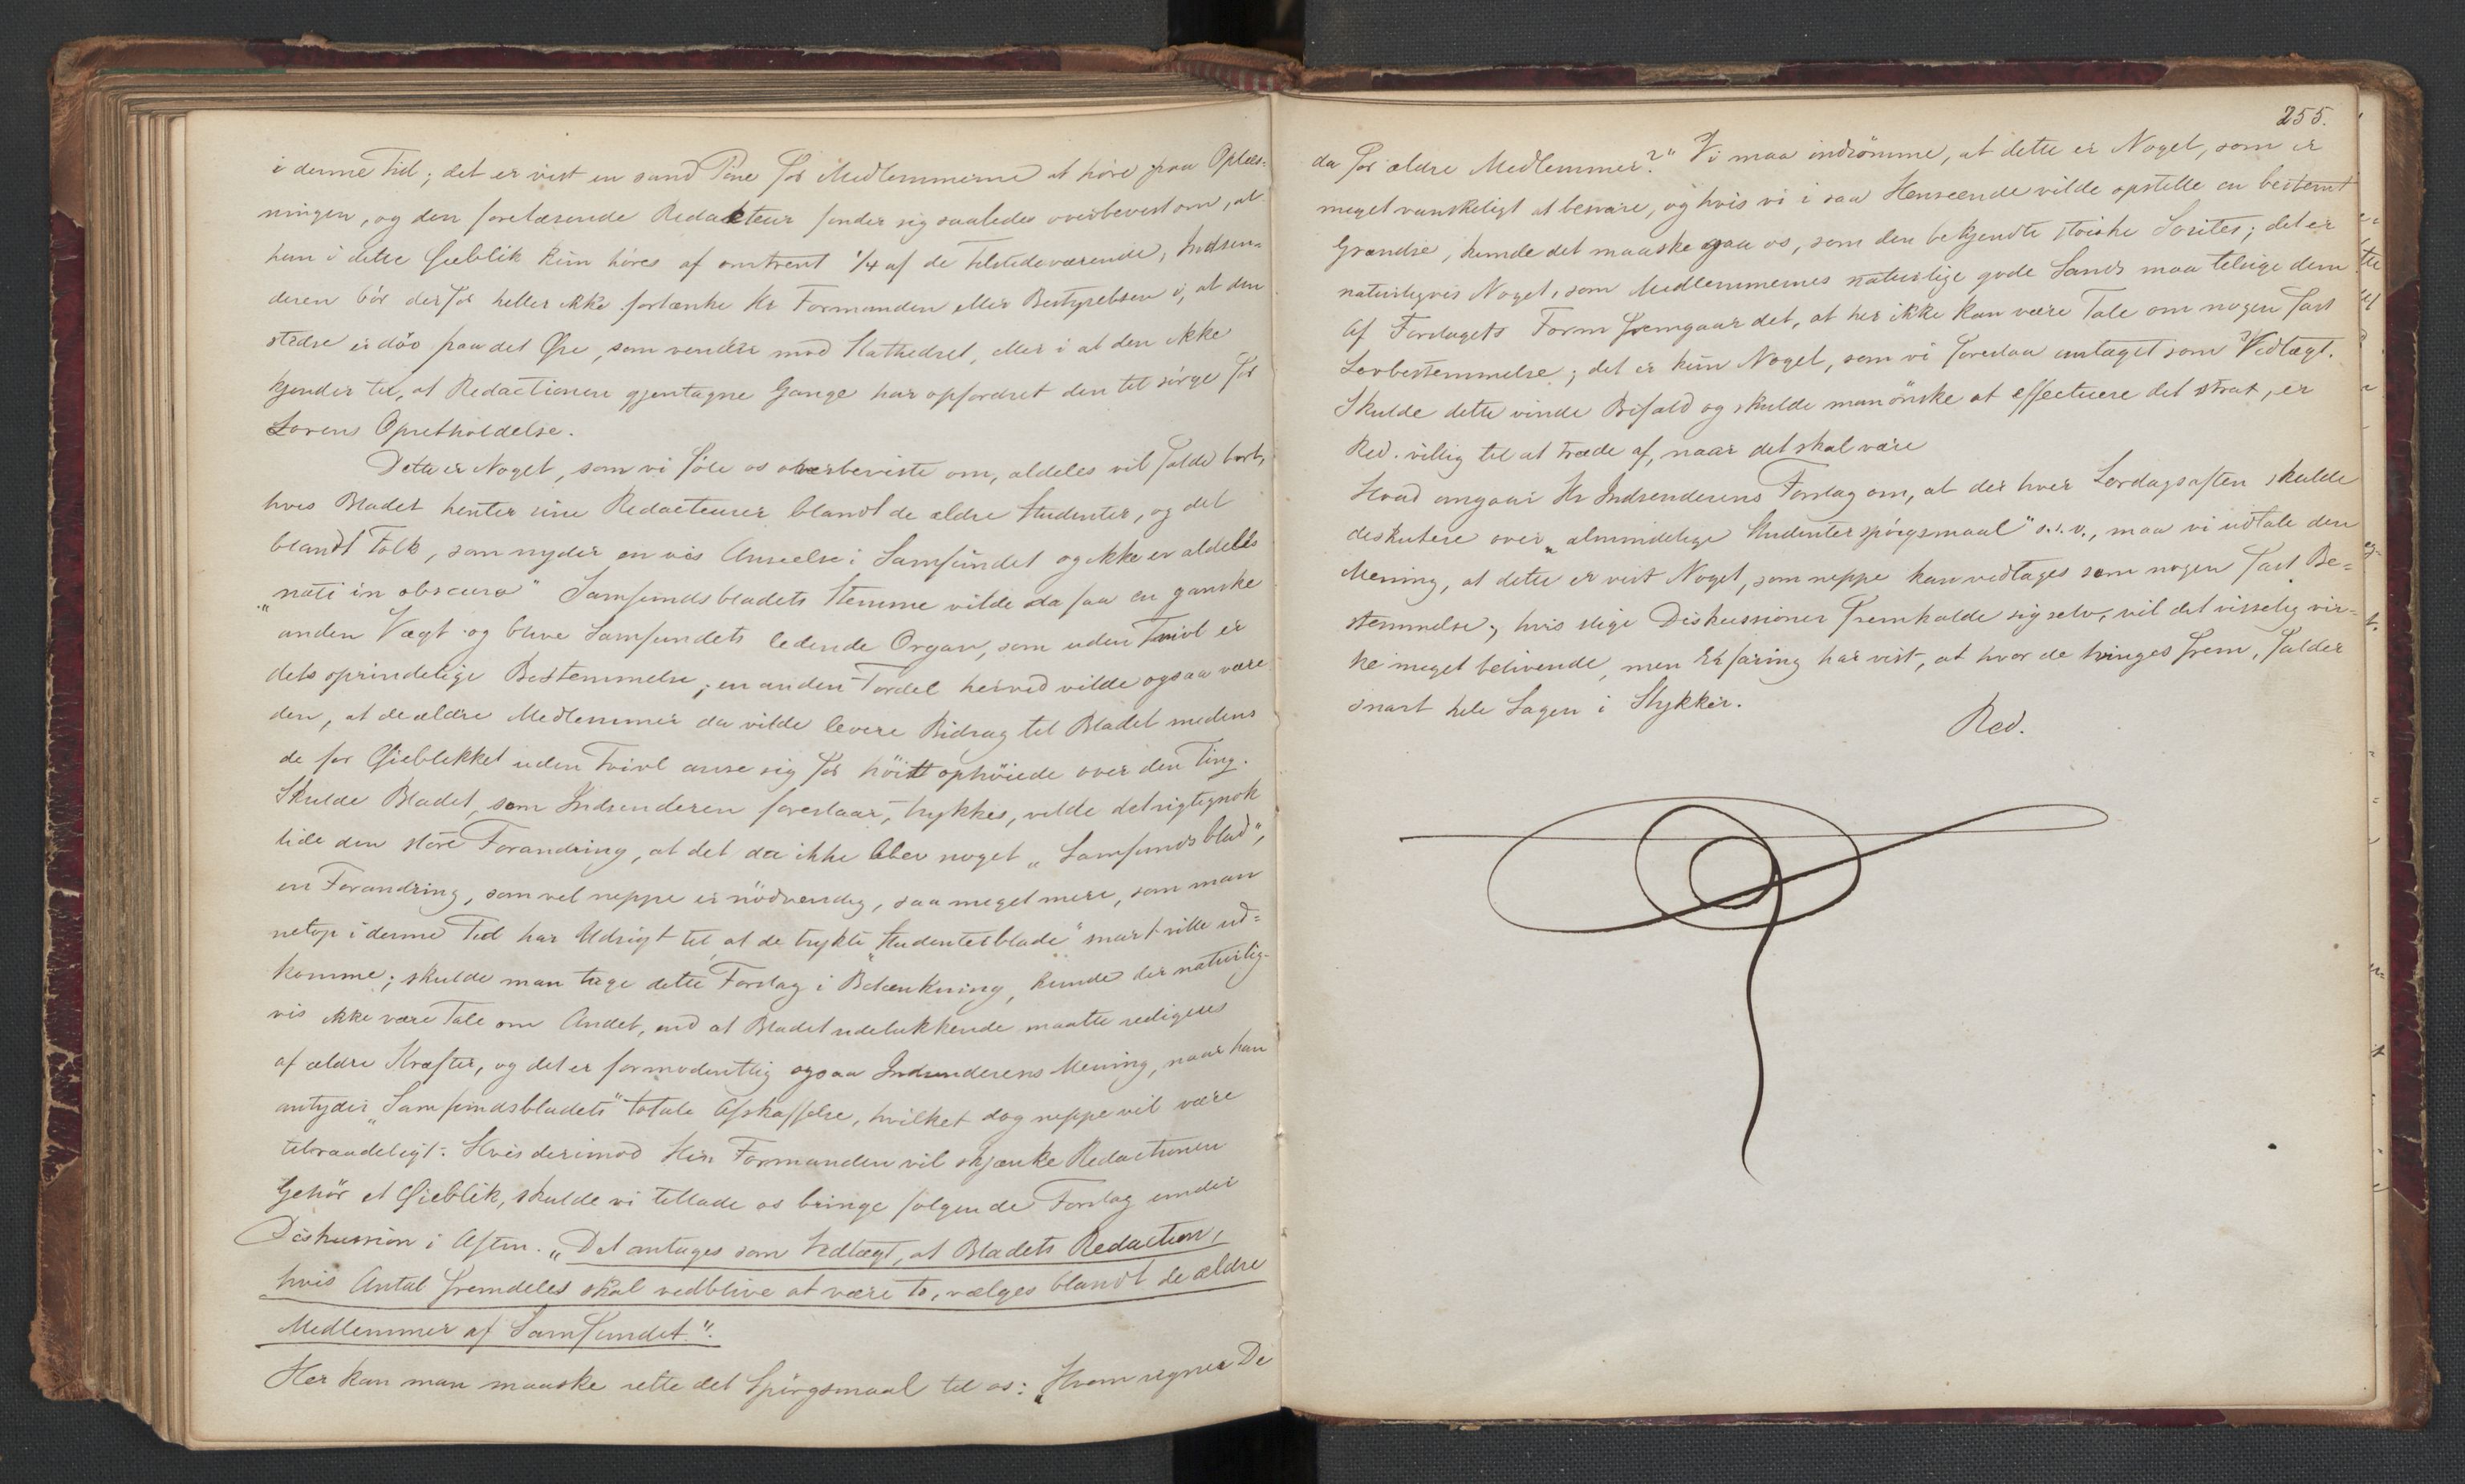 i denne Tid; det er vist en sand Pine for Medlemmerne at höre paa Oplæs-
ningen, og den forelæsende Redakteur föler sig saaledes overbevist om, at
han i dette Øieblik kun höres af omtrent 1/4 af de Tilstedeværende, Indsen-
deren bör derfor heller ikke fortænke Hr Formanden eller Bestyrelsen i, at den
sidste er döv paa det Øre, som vender mod Kathedret, eller i at den ikke
kjender til, at Redactionen gjentagne Gange har opfordret den til sörge for
Lovens Opretholdelse.
Dette er Noget, som vi föle os overbeviste om, aldeles vil falde bort,
hvis Bladet henter sine Redacteurer blandt de ældre Studenter, og det
blandt Folk, som nyder en vis Anseelse i Samfundet og ikke er aldeles
"nati in obscuro" Samfundsbladets Stemme vilde da faa en ganske
anden Vægt og blive Samfundets ledende Organ, som uden Tvivl er
dets oprindelige Bestemmelse; en anden Fordel herved vilde ogsaa være
den, at de ældre Medlemmer da vilde levere Bidrag til Bladet medens
de for Øieblikket uden Tvivl anse sig for höit ophöiede over den Ting.
Skulde Bladet, som Indsenderen foreslaar, trykkes, vilde det rigtignok
lide den store Forandring, at det da ikke blev noget "Samfundsblad",
en Forandring, som vel neppe er nödvendig, saa meget mere, som man
netop i denne Tid har Udsigt til at de trykte "Studenterblade" snart ville ud-
komme; skulde man tage dette Forslag i Betænkning, kunde der naturlig-
vis ikke være Tale om Andet, end at Bladet udelukkende maatte redigeres
af ældre Kræfter, og det er formodentlig ogsaa Indsenderens Mening, naar han
antyder "Samfundsbladets" totale Afskaffelse, hvilket dog neppe vil være
tilraadeligt. Hvis derimod Hr. Formanden vil skjænke Redactionen
Gehör et Øieblik, skulde vi tillade os bringe fölgende Forslag under
Diskussion i Aften. "Det antages som Vedtægt, at Bladets Redaction,
hvis Antal fremdeles skal vedblive at være to, vælges blandt de ældre
Medlemmer af Samfundet."
Her kan man maaske rette det Spörgsmaal til os: "Hvem regner De
255.
da for ældre Medlemmer?" Vi maa indrömme, at dette er Noget, som er
meget vanskeligt at besvare, og hvis vi i saa Henseende vilde opstille en bestemt
Grændse, kunde det maaske gaa os, som den bekjendte stoiske Sorites; det er
naturligvis Noget, som Medlemmernes naturlige gode Sands maa tilsige dem
Af Forslagets Form fremgaar det, at her ikke kan være Tale om nogen fast
Lovbestemmelse; det er kun Noget, som vi foreslaa antaget som Vedtægt.
Skulde dette vinde Bifald og skulde man önske at effectuere det strax, er
Red. villig til at træde af, naar det skal være
Hvad angaar Hr Indsenderens Forslag om, at der hver Lördagsaften skulde
diskutere over "almindelige Studenterspörgsmaal" o.s.v., maa vi udtale den
Mening, at dette er vist Noget, som neppe kan vedtages som nogen fast Be-
stemmelse; hvis slige Diskussioner fremkalde sig selv, vil det visselig vir-
ke meget belivende, men Erfaring har vist, at hvor de tvinges frem, falder
snart hele Sagen i Stykker.
Red.